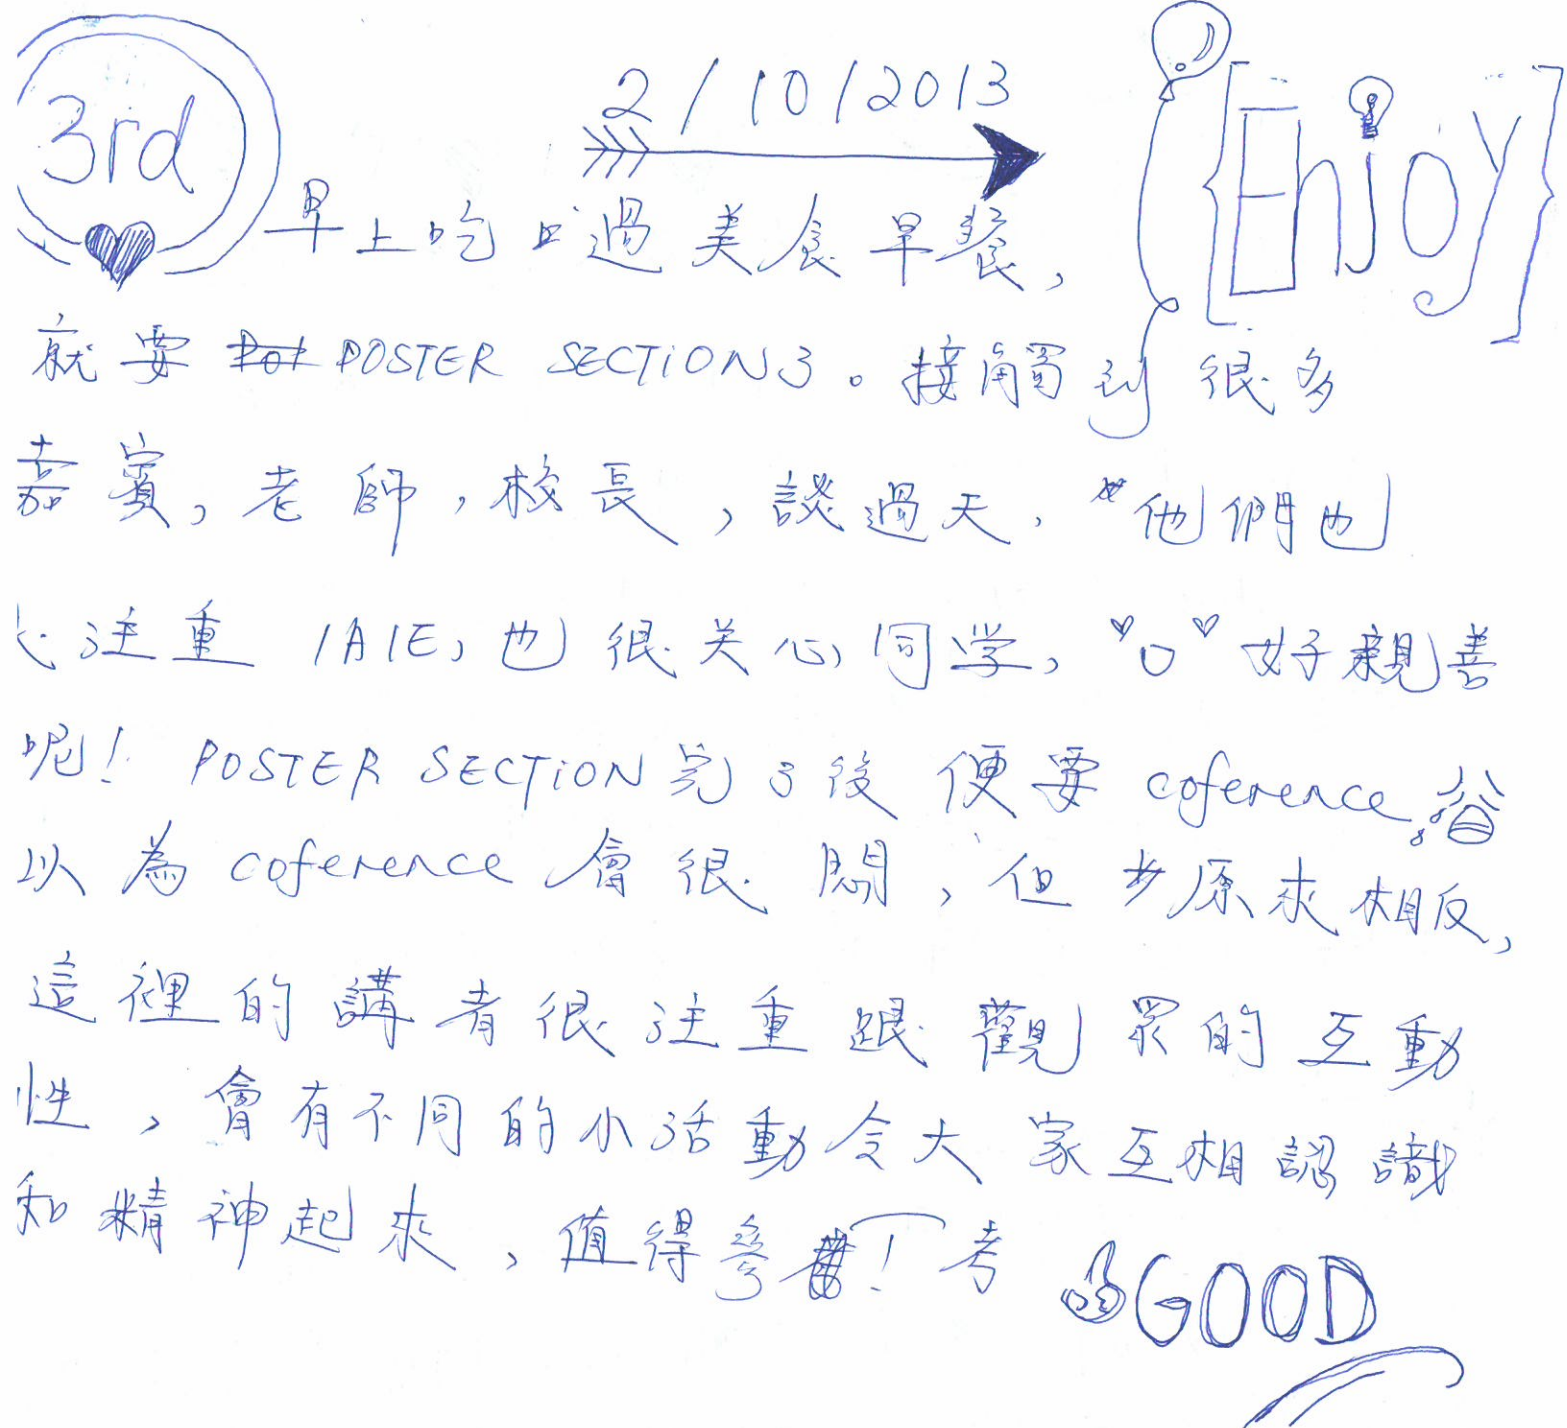 3rd
2/10/2013
{Enjoy}
早上吃過美食早餐，
就要 POSTER SECTiON了。接觸到很多
嘉賓，老師，校長，談過天，他們也
很注重 IAIE，也很关心同学，"♥o♥"好親善
呢！ POSTER SECTiON完了後便要 coference，
以為 coference 會很悶，但原來相反，
這裡的講者很注重跟觀眾的互動
性，會有不同的小活動令大家互相認識
和精神起來，值得參考！
GOOD